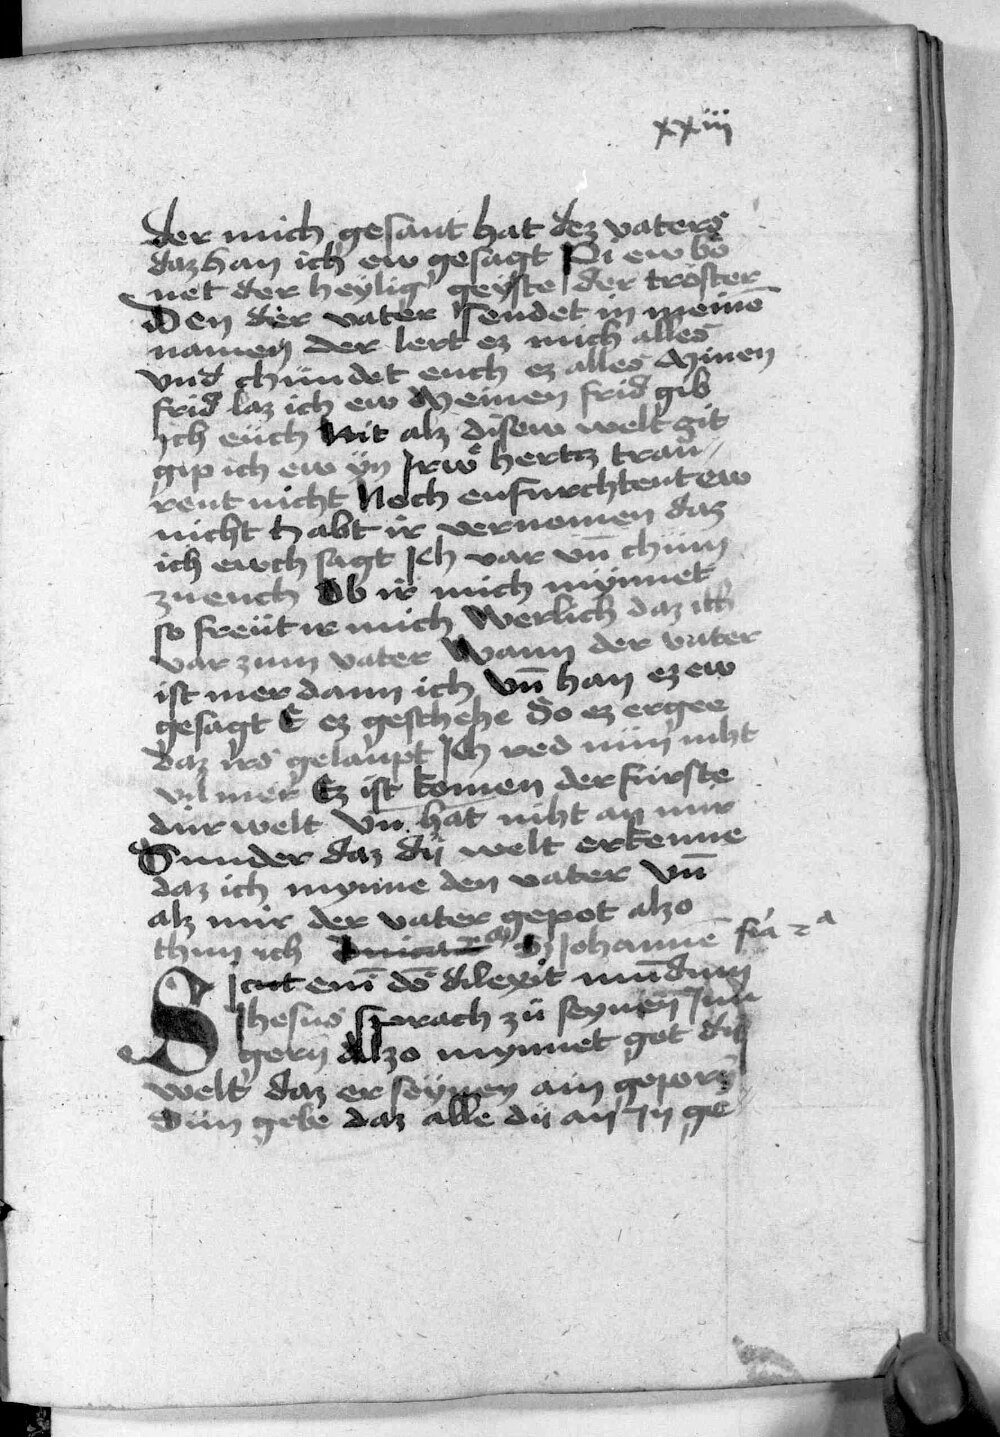 xxiii
der mich gesant hat dez vaters
daz han ich ew gesagt Pi ew bo
net der heylig' geyste der troster
Den der vater sendet in meinē
namen der lert ez mich alles
vnd chündet euch ez alles Minen
frid laz ich ew Meinen frid gib
ich eüch Nit alz disew welt git
gip ich ew yn Irw hertz trau
rent nicht Noch enfurchtent ew
nicht habt ir vernomen daz
ich ewch sagt Ich var vn̄ chüm
zu euch Ob ir mich mynnet
so freüt ir mich Werlich daz ich
var zum vater Wann der vater
ist mer dann ich Vn̄ han ez ew
gesagt E ez geschehe So ez ergee
daz irs gelaupt Ich red nün niht
vil mer Ez ist komen der fürste
dirr welt Vn̄ hat niht an mir
Sunder daz dü welt erkenne
daz ich mynne den vater Vn̄
alz mir der vater gepot alzo
thun ich Johannē fīa 2a
Sicut enī dō dilexit mūdum
Ihesus sprach zü seynen Jun
gern Alzo mynnet got die
welt daz er seynen ain geporn
Sün gebe daz alle dü an In ge